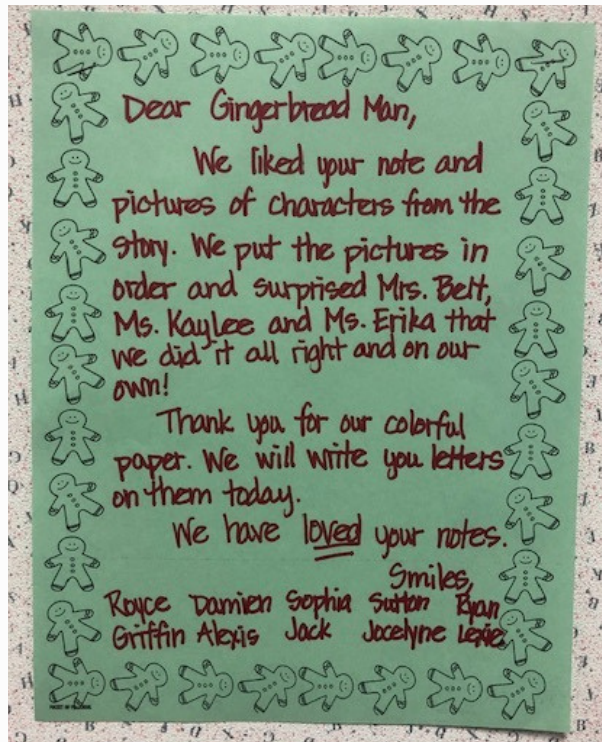 Dear Gingerbread Man,
We liked your note and
pictures of characters from the
story. We put the pictures in
order and surprised Mrs. Belt,
Ms. Kaylee and Ms. Erika that
we did it all right and on our
own!
Thank you for our colorful
paper. We will write you letters
on them today.
We have loved your notes.
Smiles,
Royce Damien Sophia Sutton Ryan
Griffin Alexis Jack Jocelyne Lexie